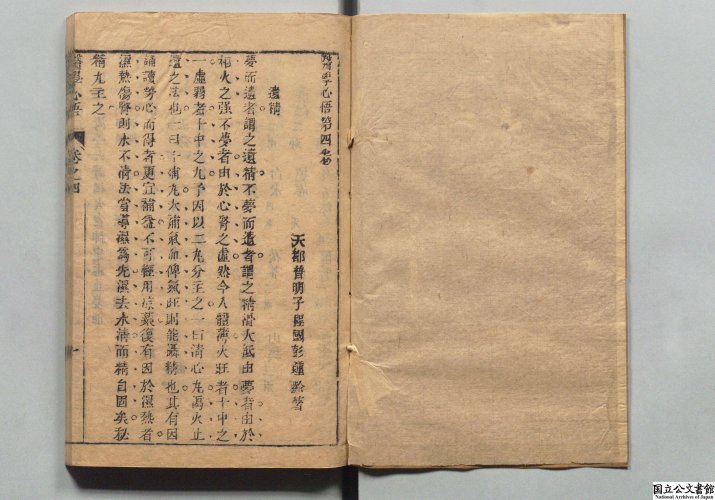 醫學心悟第四卷
天都普明子程國彭鍾齡著
遺精
夢而遺者謂之遺精不夢而遺者謂之精滑大抵由夢者由於
相火之强不夢者由於心腎之虛然今人體薄火旺者十中之
一虛弱者十中之九予因以二丸分主之一曰清心丸瀉火止
遺之法也一曰十補丸大補氣血俾氣旺則能攝精也其有因
誦讀勞心而得者更宜補益不可輕用凉藥復有因於濕熱者
濕熱傷腎則水不清法當導濕爲先濕去水清而精自固矣秘
精丸主之
醫學心悟
卷之四
一
国立公文書館
National Archives of Japan